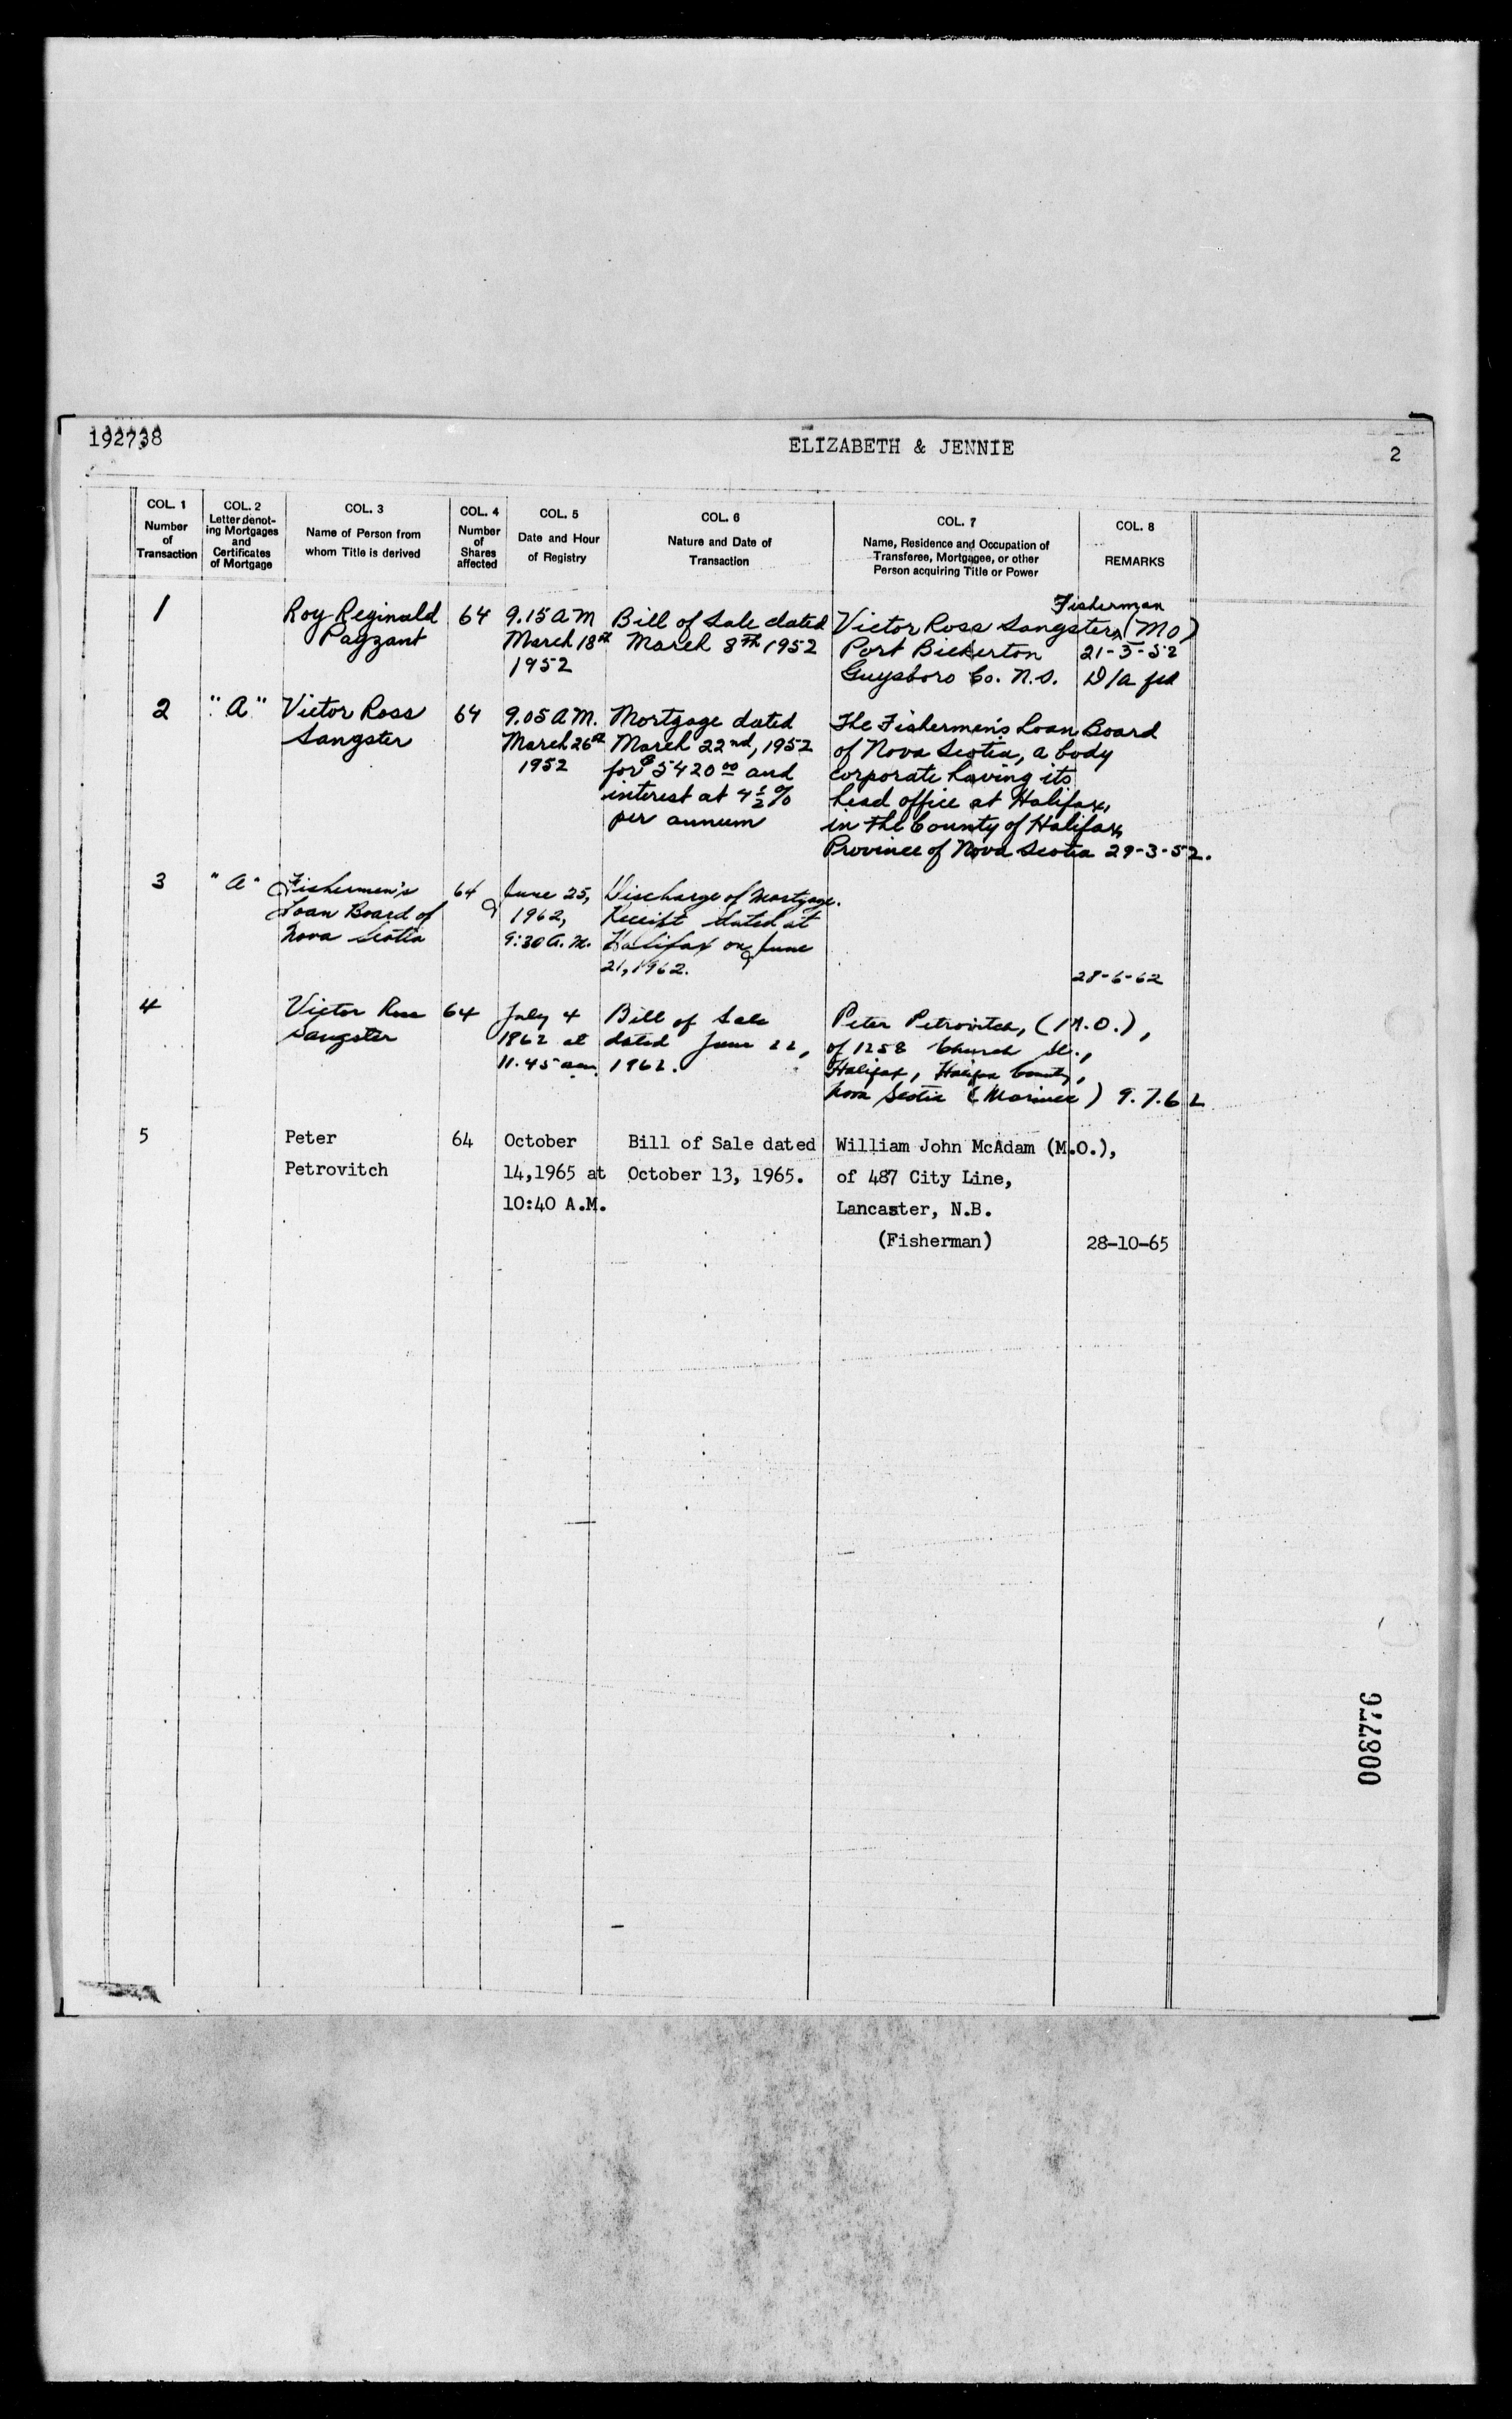 192738
ELIZABETH & JENNIE
2
COL. 1
Number
of
Transaction
COL. 2
Letter denot-
ing Mortgages
and
Certificates
of Mortgage
COL. 3
Name of Person from
whom Title is derived
COL. 4
Number
of
Shares
affected
COL. 5
Date and Hour
of Registry
COL. 6
Nature and Date of
Transaction
COL. 7
Name, Residence and Occupation of
Transferee, Mortgagee, or other
Person acquiring Title or Power
COL. 8
REMARKS
1
Roy Reginald
Payzant
64
9.15 AM
March 18th
1952
Bill of Sale dated
March 8th 1952
Fisherman
Victor Ross Sangster (MO)
Port Bickerton
Guysboro Co. N.S.
21-3-52
D/A
2
"A"
Victor Ross
Sangster
64
9.05 AM.
March 26th
1952
Mortgage dated
March 22nd, 1952
for $5420 00 and
interest at 4 1/2 %
per annum
The Fishermen's Loan Board
of Nova Scotia, a body
corporate having its
head office at Halifax,
in the County of Halifax,
Province of Nova Scotia
29-3-52.
3
"A"
Fishermen's
Loan Board of
Nova Scotia
64
June 25,
1962,
9:30 A.M.
Discharge of Mortgage.
Receipt dated at
Halifax on June
21, 1962.
28-6-62
4
Victor Ross
Sangster
64
July 4
1962 at
11.45 am.
Bill of Sale
dated June 22,
1962.
Peter Petrovitch, (M.O.),
of 1258 Church St.,
Halifax, Halifax County,
Nova Scotia (Mariner)
9.7.62
5
Peter
Petrovitch
64
October
14,1965 at
10:40 A.M.
Bill of Sale dated
October 13, 1965.
William John McAdam (M.O.),
of 487 City Line,
Lancaster, N.B.
(Fisherman)
28-10-65
008776